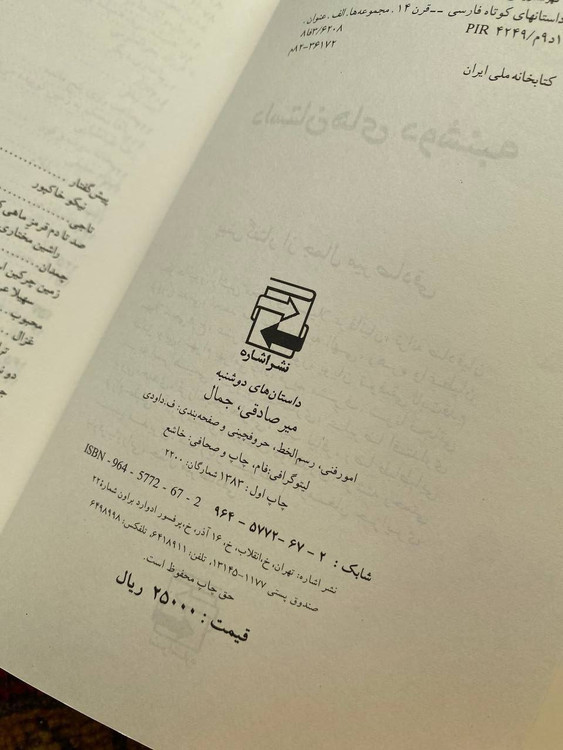 داستانهای کوتاه فارسی -- قرن ۱۴. مجموعه‌ها. الف. عنوان.
۸فا۳/۶۲۰۸
PIR ۴۲۴۹/م۹د۱
۸۲-۳۶۱۷۲م
کتابخانه ملی ایران
نشر اشاره
داستان‌های دوشنبه
میرصادقی، جمال
امور فنی، رسم‌الخط، حروفچینی و صفحه‌بندی: ف. داودی
لیتوگرافی: قام، چاپ و صحافی: خاشع
چاپ اول: ۱۳۸۳ شمارگان: ۲۲۰۰
شابک: ۲ - ۶۷ - ۵۷۷۲ - ۹۶۴ ISBN - 964 - 5772 - 67 - 2
نشر اشاره: تهران، خ. انقلاب، خ. ۱۶ آذر، خ. پرفسور ادوارد براون شماره ۲۲
صندوق پستی ۱۱۷۷-۱۳۱۴۵، تلفن: ۶۴۱۸۹۱۱، تلفکس: ۶۴۹۸۹۹۸
حق چاپ محفوظ است.
قیمت: ۲۵۰۰۰ ریال
پیش‌گفتار
نیکو خاکپور
ناجی
صد تا دم قرمز ماهی
راشین مختاری
چمدان
زمین چرکین
سهیلا
محبوب
غزال